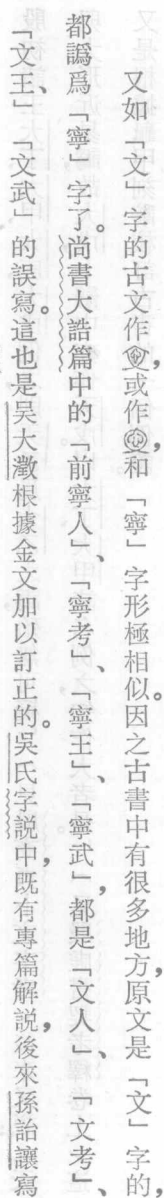 又如「文」字的古文作,或作,和「寧」字形極相似。因之古書中有很多地方,原文是「文」字的,
都譌爲「寧」字了。尚書大誥篇中的「前寧人」、「寧考」、「寧王」、「寧武」,都是「文人」、「文考」、
「文王」、「文武」的誤寫。這也是吴大澂根據金文加以訂正的。吳氏字説中,既有專篇解説,後來孫詒讓寫